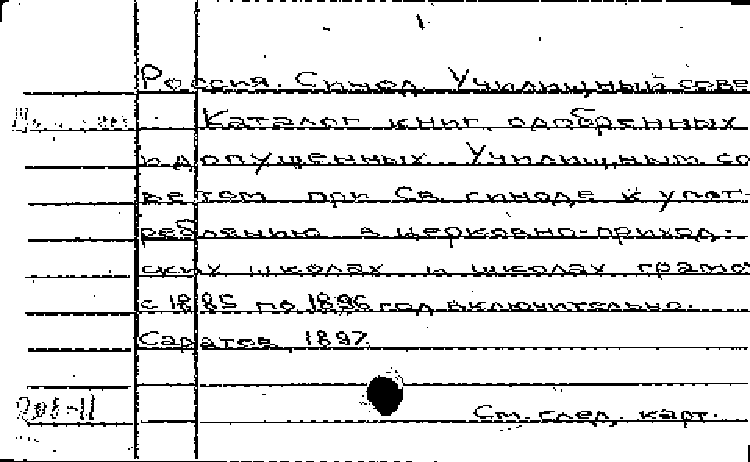 Россия. Синод. Училищный сове
Каталог книг, одобренных
и допущенных Училищным со
ветом при Св. синоде к упот-
реблению в церковно-приход-
ских школах и школах грамо
с 1885 по 1896 год включительно.
Саратов, 1897.
См. след. карт.